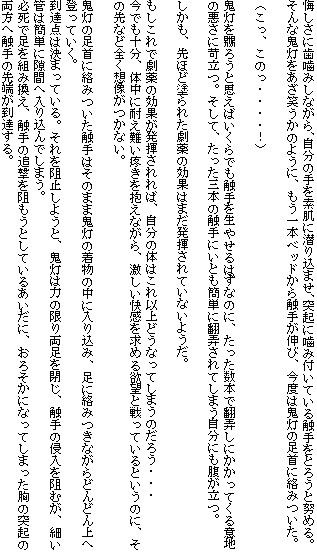 悔しさに歯噛みしながら、自分の手を素肌に潜り込ませ、突起に噛み付いている触手をどうろうと努める。
そんな鬼灯をあざ笑うかのように、もう一本ベッドから触手が伸び、今度は鬼灯の足首に絡みついた。
（こっ、このっ・・・・！）
鬼灯を嬲ろうと思えばいくらでも触手を生やせるはずなのに、たった数本で翻弄しにかかってくる意地
の悪さに苛立つ。そして、たった三本の触手にいとも簡単に翻弄されてしまう自分にも腹が立つ。
しかも、先ほど塗られた劇薬の効果はまだ発揮されていないようだ。
もしこれで劇薬の効果が発揮されれば、自分の体はこれ以上どうなってしまうのだろう・・・
今でも十分、体中に耐え難い疼きを抱えながら、激しい快感を求める欲望と戦っているというのに、そ
の先など全く想像がつかない。
鬼灯の足首に絡みついた触手はそのまま鬼灯の着物の中に入り込み、足に絡みつきながらどんどん上へ
登っていく。
到達点は決まっている。それを阻止しようと、鬼灯は力の限り両足を閉じ、触手の侵入を阻むが、細い
管は簡単に隙間へ入り込んでしまう。
必死で足を組み換え、触手の追撃を阻もうとしているあいだに、おろそかになってしまった胸の突起の
両方へ触手の先端が到達する。